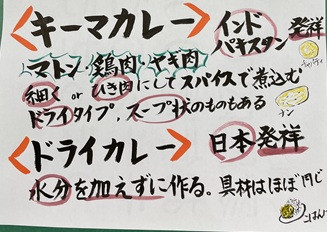 <キーマカレー> インド 発祥
パキスタン
チャパティ
マトン・鶏肉・ヤギ肉
細く or ひき肉にしてスパイスで煮込む
ドライタイプ、スープ状のものもある
ナン
<ドライカレー> 日本発祥
水分を加えずに作る。具材はほぼ同じ
ごはん